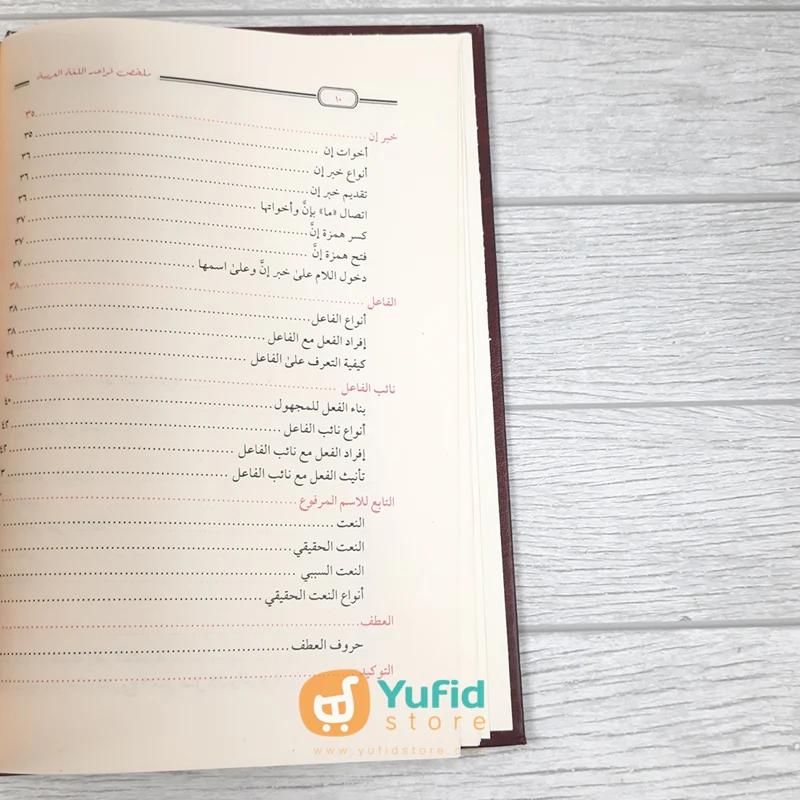 ملخص قواعد اللغة العربية
١٠
خبر إن ٣٥
أخوات إن ٣٥
أنواع خبر إن ٣٦
تقديم خبر إن ٣٦
اتصال «ما» بإنَّ وأخواتها ٣٦
كسر همزة إنَّ ٣٧
فتح همزة إنَّ ٣٧
دخول اللام علىٰ خبر إنَّ وعلىٰ اسمها ٣٧
الفاعل ٣٨
أنواع الفاعل ٣٨
إفراد الفعل مع الفاعل ٣٨
كيفية التعرف علىٰ الفاعل ٣٩
نائب الفاعل ٤٠
بناء الفعل للمجهول ٤٠
أنواع نائب الفاعل ٤٢
إفراد الفعل مع نائب الفاعل ٤٢
تأنيث الفعل مع نائب الفاعل
التابع للاسم المرفوع
النعت
النعت الحقيقي
النعت السببي
أنواع النعت الحقيقي
العطف
حروف العطف
التوكيد
Yufid
store
www.yufidstore.com